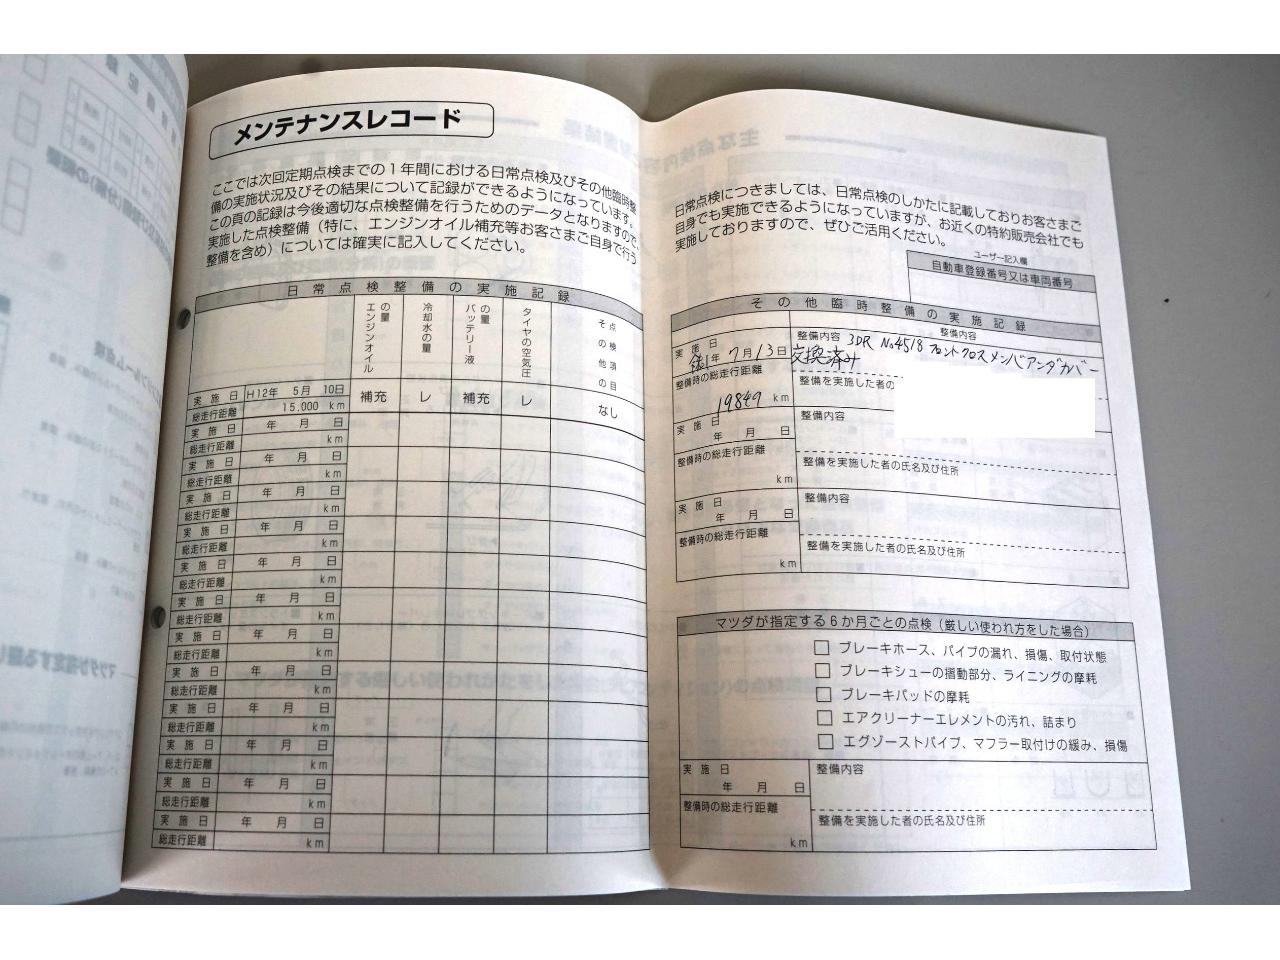 メンテナンスレコード
ここでは次回定期点検までの1年間における日常点検及びその他臨時整
備の実施状況及びその結果について記録ができるようになっています。
この頁の記録は今後適切な点検整備を行うためのデータとなりますので、
実施した点検整備（特に、エンジンオイル補充等お客さまご自身で行う
整備を含め）については確実に記入してください。
日常点検整備の実施記録
エンジンオイルの量
冷却水の量
バッテリー液の量
タイヤの空気圧
その他の点検項目
実施日 H12年 5月 10日 補充 レ 補充 レ なし
総走行距離 15.000 km
実施日 年 月 日
総走行距離 km
実施日 年 月 日
総走行距離 km
実施日 年 月 日
総走行距離 km
実施日 年 月 日
総走行距離 km
実施日 年 月 日
総走行距離 km
実施日 年 月 日
総走行距離 km
実施日 年 月 日
総走行距離 km
実施日 年 月 日
総走行距離 km
実施日 年 月 日
総走行距離 km
実施日 年 月 日
総走行距離 km
実施日 年 月 日
総走行距離 km
実施日 年 月 日
総走行距離 km
日常点検につきましては、日常点検のしかたに記載しておりお客さまご
自身でも実施できるようになっていますが、お近くの特約販売会社でも
実施しておりますので、ぜひご活用ください。
ユーザー記入欄
自動車登録番号又は車両番号
その他臨時整備の実施記録
整備内容
実施日 整備内容 3DR No.4518 フロントクロスメンバアンダカバー
年 7月13日 交換済み
整備時の総走行距離 整備を実施した者の
19849 km
実施日 整備内容
年 月 日
整備時の総走行距離 整備を実施した者の氏名及び住所
km
実施日 整備内容
年 月 日
整備時の総走行距離 整備を実施した者の氏名及び住所
km
マツダが指定する6か月ごとの点検（厳しい使われ方をした場合）
□ ブレーキホース、パイプの漏れ、損傷、取付状態
□ ブレーキシューの摺動部分、ライニングの摩耗
□ ブレーキパッドの摩耗
□ エアクリーナーエレメントの汚れ、詰まり
□ エグゾーストパイプ、マフラー取付けの緩み、損傷
実施日 整備内容
年 月 日
整備時の総走行距離 整備を実施した者の氏名及び住所
km